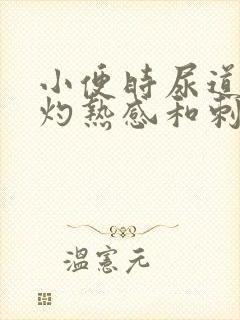 小便时尿道
灼热感和刺
温宪元